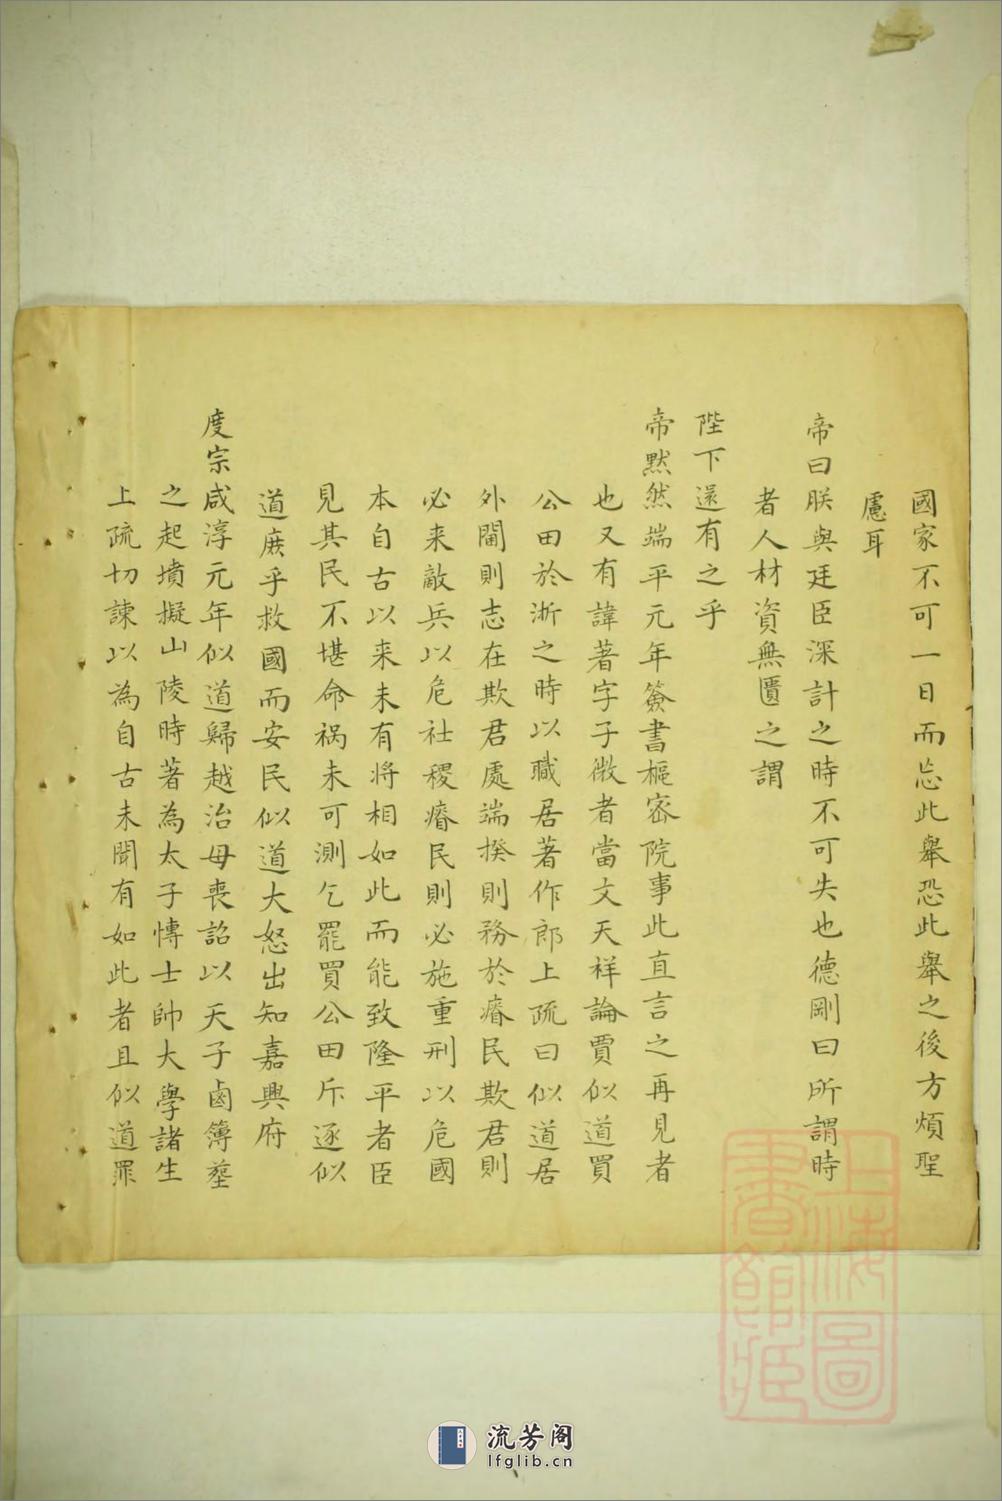 國家不可一日而忘此舉恐此舉之後方煩聖
慮耳
帝曰朕與廷臣深計之時不可失也德剛曰所謂時
者人材資無匱之謂
陛下還有之乎
帝默然端平元年簽書樞密院事此直言之再見者
也又有諱著字子微者當文天祥論賈似道買
公田於浙之時以職居著作郎上疏曰似道居
外閫則志在欺君處端揆則務於瘠民欺君則
必来敵兵以危社稷瘠民則必施重刑以危國
本自古以来未有将相如此而能致隆平者臣
見其民不堪命祸未可測乞罷買公田斥逐似
道庶乎救國而安民似道大怒出知嘉興府
度宗咸淳元年似道歸越治母喪詔以天子鹵簿塟
之起墳擬山陵時著為太子慱士帥大學諸生
上疏切諫以為自古未聞有如此者且似道罪
上海圖書館藏
流芳阁
lfglib.cn